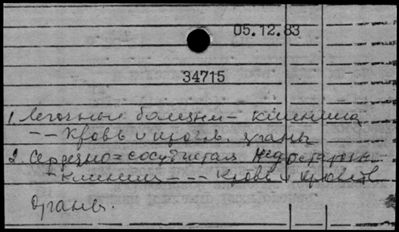 05.12.83
34715
1. Легочные болезни - клиника
-- Кровь и кров. органы
2. Сердечно-сосудистая недостаточн.
- клиника -- Кровь и кровет.
органы.